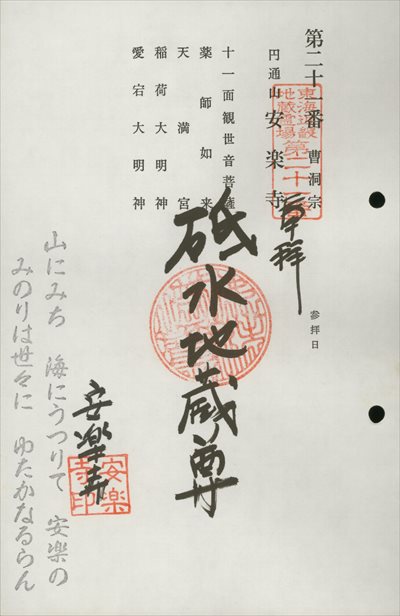 第二十一番 曹洞宗
円通山 安楽寺
東海道設
地蔵道場
第二十一
奉拝
参拝日
十一面観世音菩薩
薬師如来
天満宮
稲荷大明神
愛宕大明神
砥水地蔵尊
安楽寺
安楽
寺印
山にみち 海にうつりて 安楽の
みのりは世々に ゆたかなるらん